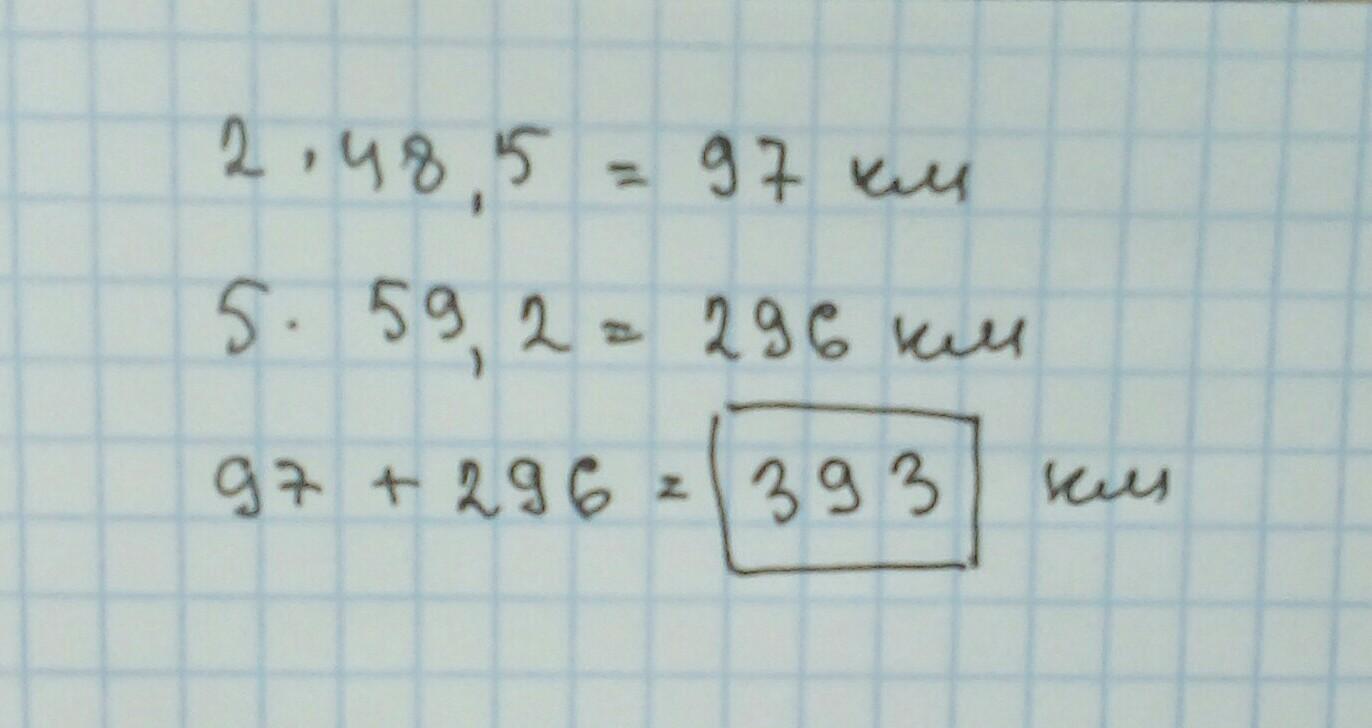 2 · 48,5 = 97 км
5 · 59,2 = 296 км
97 + 296 = 393 км